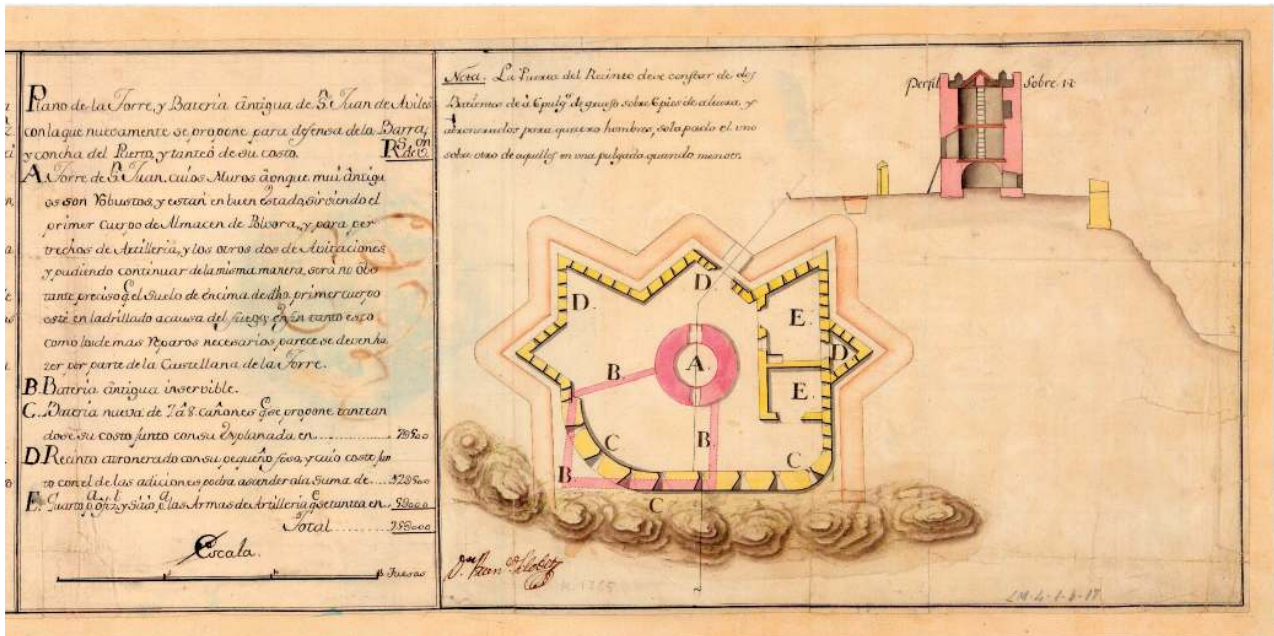 Plano de la Torre, y Bateria ântigua de S. Juan de Aviles
con la que nuevamente se propone para defensa de la Barra,
y concha del Puerto, y tanteó de su costo. R.s de V.on
A. Torre de S. Juan, cuios Muros âonque mui ântigu
os son Robustos, y están en buen estado, sirviendo el
primer Cuerpo de Almacen de Polvora, y para per
trechos de Artilleria, y los otros dos de Avitaciones
y pudiendo continuar de la misma manera, será no obs
tante preciso q.e el suelo de éncima de dho. primer cuerpo
esté enladrillado acausa del fuego, en tanto esto
como los demas Reparos necesarios parece se deven ha
zer por parte de la Castellana de la Torre.
B. Bateria ântigua inservible.
C. Bateria nueva de 7 â 8 cañones q.e se propone tantean
dose su costo junto con su Explanada en
D. Recinto atronerado con su pequeño foso, y cuio costo jun
to con el de las adiciones podra asender ala suma de
E. Quarto y Sitio las Armas de Artilleria q.e se tantea en
Total
Escala.
Tuesas
Nota. La Puerta del Recinto deve constar de dos
Batientes de â 6 pulg.s de grueso sobre 6 pies de altura, y
atronerados para quatro hombres, solapado el uno
sobre otro de aquellos en una pulgada quando menos.
Perfil Sobre 12
D. D. E. D.
A. B. E.
C B C
B C
D.n Fran.co Llobet
LM-4-1-b-17